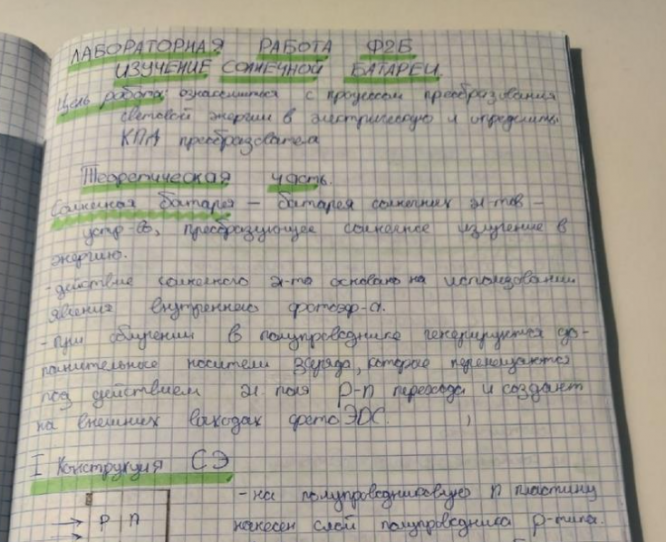 ЛАБОРАТОРНАЯ РАБОТА Ф2Б
ИЗУЧЕНИЕ СОЛНЕЧНОЙ БАТАРЕИ
Цель работы: ознакомиться с процессом преобразования
световой энергии в электрическую и определить
КПД преобразователя
Теоретическая часть.
Солнечная батарея – батарея солнечных эл-тов –
устр-во, преобразующее солнечное излучение в
энергию.
- действие солнечного эл-та основано на использовании
явления внутреннего фотоэф-а.
- При облучении в полупроводнике генерируется до-
полнительные носители заряда, которые перемещаются
под действием эл. поля p-n перехода и создают
на внешних выходах фотоЭДС.
I Конструкция СЭ
- на полупроводниковую n пластину
нанесен слой полупроводника p-типа.
P | n